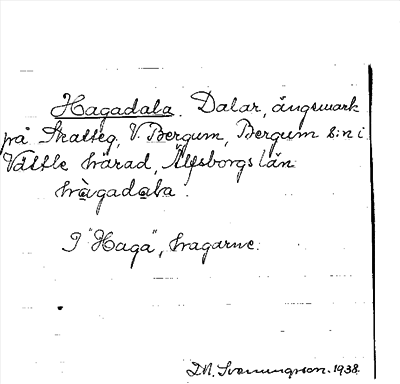 Hagadala. Dalar, ängsmark
på Skatteg, V. Bergum, Bergum s:n i
Vättle härad, Älfsborgs län
hàgadala.
I "Haga", hagarne.
D.N. Svenungsson. 1938.